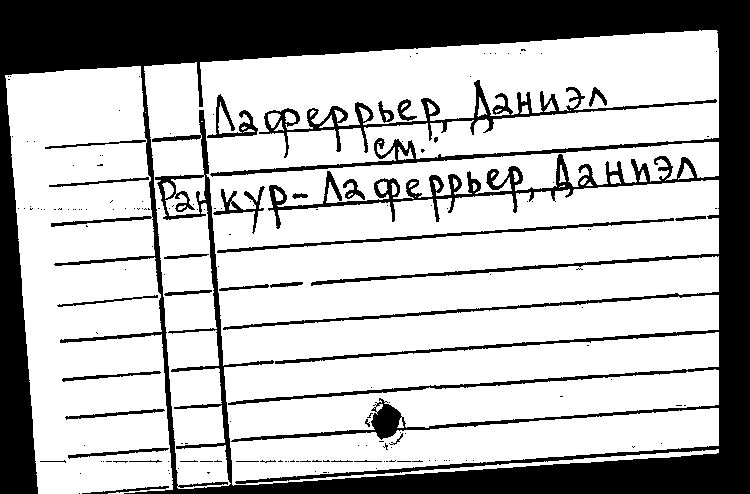 Лаферрьер, Даниэл
см.:
Ранкур-Лаферрьер, Даниэл